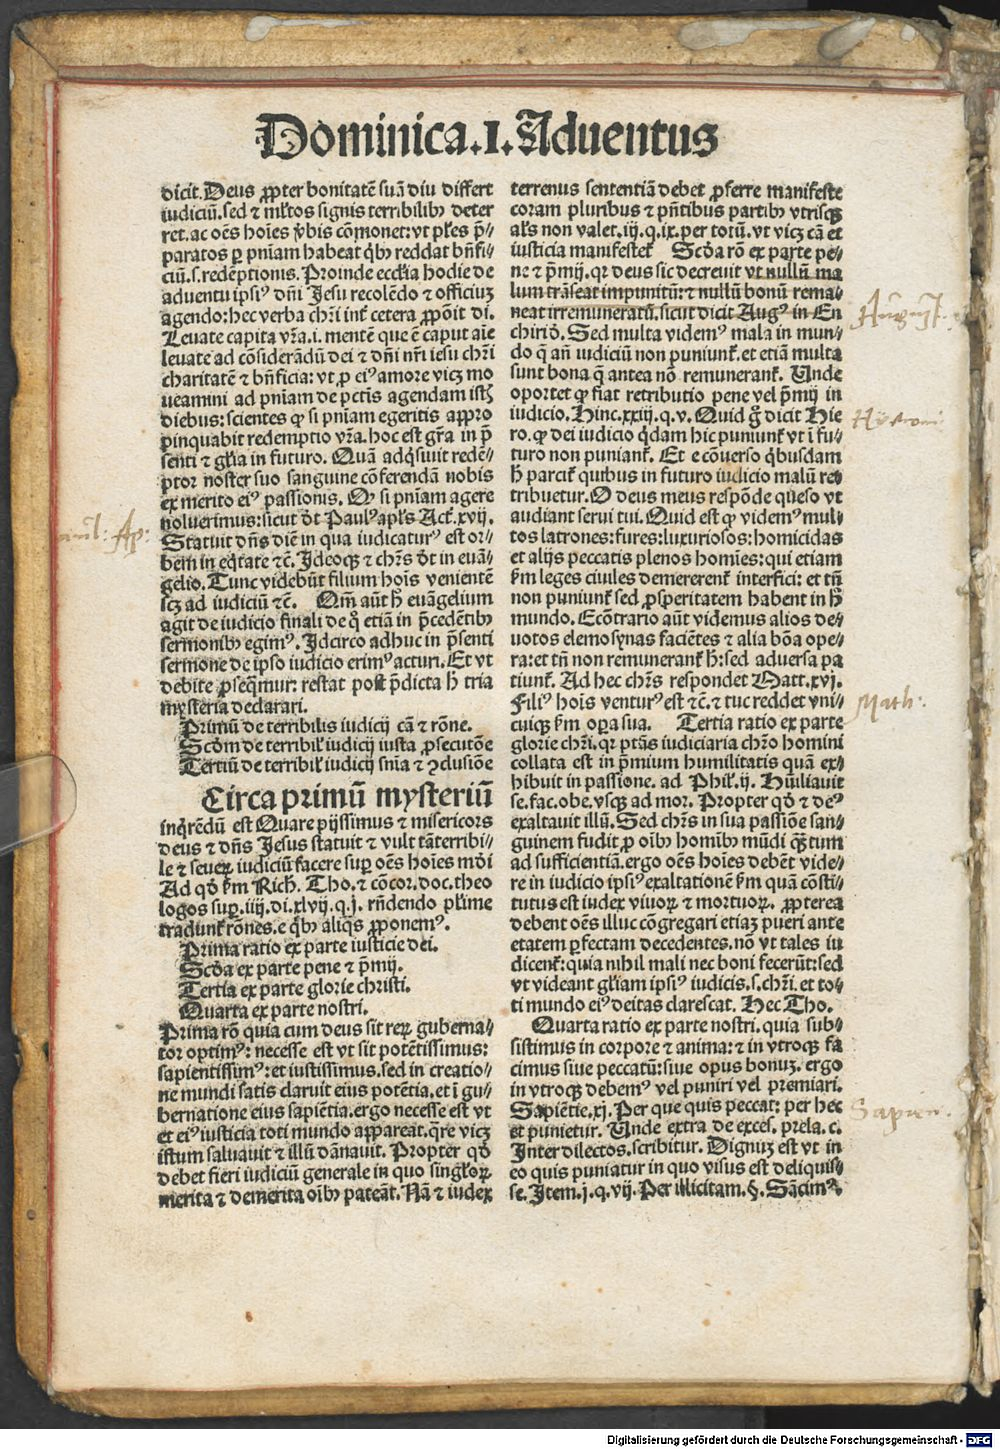 Dominica.I.Aduentus
dicit. Deus ꝓpter bonitatē suā diu differt
iudiciū. sed ⁊ ml̄tos signis terribilibꝰ deter
ret. ac oēs hoīes v̄bis cōmonet: vt pl̄es p̄⸗
paratos ꝑ pniam habeat q̄bꝰ reddat bn̄fi⸗
ciū. s. redēptionis. Proinde eccl̄ia hodie de
aduentu ipsiꝰ dn̄i Jesu recolēdo ⁊ officiuꝫ
agendo: hec verba chr̄i int̄ cetera ꝓpōit di.
Leuate capita vr̄a. i. mentē que ē caput aīe
leuate ad cōsiderādū dei ⁊ dn̄i nr̄i iesu chr̄i
charitatē ⁊ bn̄ficia: vt ꝓ eiꝰ amore vicꝫ mo
ueamini ad pniam de pctīs agendam isth̄
diebus: scientes ꝙ si pniam egeritis appro
pinquabit redemptio vr̄a. hoc est gr̄a in p̄
senti ⁊ gl̄ia in futuro. Quā adq̄siuit redē⸗
ptor noster suo sanguine cōferendā nobis
ex merito eiꝰ passionis. Qꝫ si pniam agere
noluerimus: sicut dt̄ Paulꝰ apl̄s Act̄. xvij.
Statuit dn̄s diē in qua iudicaturꝰ est or⸗
bem in eq̄tate ⁊c̄. Jdeoqꝫ ⁊ chr̄s dt̄ in euā⸗
gelio. Tunc videbūt filium hoīs venientē
scꝫ ad iudiciū ⁊c̄. Qm̄ aūt h̄ euāgelium
agit de iudicio finali de q̊ etiā in p̄cedētibꝰ
sermonibꝰ egimꝰ. Jdcirco adhuc in p̄senti
sermone de ipso iudicio erimꝰ acturi. Et vt
debite ꝓseq̄mur: restat post p̄dicta h̄ tria
mysteria declarari.
Primū de terribilis iudicij cā ⁊ rōne.
Scd̄m de terribil̄ iudicij iusta ꝓsecutōe
Tertiū de terribil̄ iudicij sn̄ia ⁊ ↄclusiōe
Circa primū mysteriū
inq̄rēdū est Quare pijssimus ⁊ misericors
deus ⁊ dn̄s Jesus statuit ⁊ vult tā terribi⸗
le ⁊ seueꝝ iudiciū facere sup̲ oēs hoīes mūdi
Ad qd̄ ẜm Rich̄. Tho. ⁊ cōcor. doc. theo
logos sup̲. iiij. di. xlvij. q. j. rn̄dendo pl̄ime
tradunt̄ rōnes. e q̄bꝰ aliq̄s ꝓponemꝰ.
Prima ratio ex parte iusticie dei.
Scd̄a ex parte pene ⁊ p̄mij.
Tertia ex parte glorie christi.
Quarta ex parte nostri.
Prima rō quia cum deus sit reꝝ guberna⸗
tor optimꝰ: necesse est vt sit potētissimus:
sapientissimꝰ: et iustissimus. sed in creatio⸗
ne mundi satis claruit eius potētia. et ī gu⸗
bernatione eius sapiētia. ergo necesse est vt
et eiꝰ iusticia toti mundo appareat. q̄re vicꝫ
istum saluauit ⁊ illū dānauit. Propter qd̄
debet fieri iudiciū generale in quo singl̄oꝝ
merita ⁊ demerita oībꝰ pateāt. Nā ⁊ iudex
terrenus sententiā debet ꝓferre manifeste
coram pluribus ⁊ pn̄tibus partibꝰ vtrisqꝫ
al̄s non valet. iij. q. ix. per totū. vt vicꝫ cā et
iusticia manifestet̄ Scd̄a rō ex parte pe⸗
ne ⁊ p̄mij. qr̄ deus sic decreuit vt nullū ma
lum trāseat impunitū: ⁊ nullū bonū rema⸗
neat irremuneratū. sicut dicit Augꝰ in En
chirid̄. Sed multa videmꝰ mala in mun⸗
do q̄ an̄ iudiciū non puniunt̄. et etiā multa
sunt bona q̄ antea nō remunerant̄. Unde
oportet ꝙ fiat retributio pene vel p̄mij in
iudicio. Hinc. xxiij. q. v. Quid g̊ dicit Hie
ro. ꝙ dei iudicio q̄dam hic puniunt̄ vt ī fu⸗
turo non puniant̄. Et ecōuerso q̄busdam
h̄ parcit̄ quibus in futuro iudicio malū re⸗
tribuetur. O deus meus respōde queso vt
audiant serui tui. Quid est ꝙ videmꝰ mul⸗
tos latrones: fures: luxuriosos: homicidas
et alijs peccatis plenos homīes: qui etiam
ẜm leges ciuiles demererent̄ interfici: et tn̄
non puniunt̄ sed ꝓsperitatem habent in h̄
mundo. Ecōtrario aūt videmus alios de⸗
uotos elemosynas faciētes ⁊ alia bōa ope⸗
ra: et tn̄ non remunerant̄ h̄: sed aduersa pa
tiunt̄. Ad hec chr̄s respondet Matt. xvj.
Filiꝰ hoīs venturꝰ est ⁊c̄. ⁊ tūc reddet vni⸗
cuiqꝫ ẜm oꝑa sua. Tertia ratio ex parte
glorie chr̄i. qr̄ ptās iudiciaria chr̄o homini
collata est in p̄mium humilitatis quā ex⸗
hibuit in passione. ad Phil̄. ij. Hūiliauit
se. fac. obe. vsqꝫ ad mor. Propter qd̄ ⁊ deꝰ
exaltauit illū. Sed chr̄s in sua passiōe san⸗
guinem fudit ꝓ oībꝰ homībꝰ mūdi qꝫtum
ad sufficientiā. ergo oēs hoīes debēt vide⸗
re in iudicio ipsiꝰ exaltationē ẜm quā cōsti⸗
tutus est iudex viuoꝝ ⁊ mortuoꝝ. ꝓpterea
debent oēs illuc cōgregari etiaꝫ pueri ante
etatem ꝑfectam decedentes. nō vt tales iu
dicent̄: quia nihil mali nec boni fecerūt: sed
vt videant gl̄iam ipsiꝰ iudicis. s. chr̄i. et to⸗
ti mundo eiꝰ deitas clarescat. Hec Tho.
Quarta ratio ex parte nostri. quia sub⸗
sistimus in corpore ⁊ anima: ⁊ in vtroqꝫ fa
cimus siue peccatū: siue opus bonuꝫ. ergo
in vtroqꝫ debemꝰ vel puniri vel premiari.
Sapiētie. xj. Per que quis peccat: per hec
et punietur. Unde extra de exces. prela. c.
Jnter dilectos. scribitur. Dignuꝫ est vt in
eo quis puniatur in quo visus est deliquis⸗
se. Jtem. j. q. vij. Per illicitam. §. Sācimꝰ.
Ap:
Augꝰst.
Hieroni
Math:
Sapien.
Digitalisierung gefördert durch die Deutsche Forschungsgemeinschaft - DFG